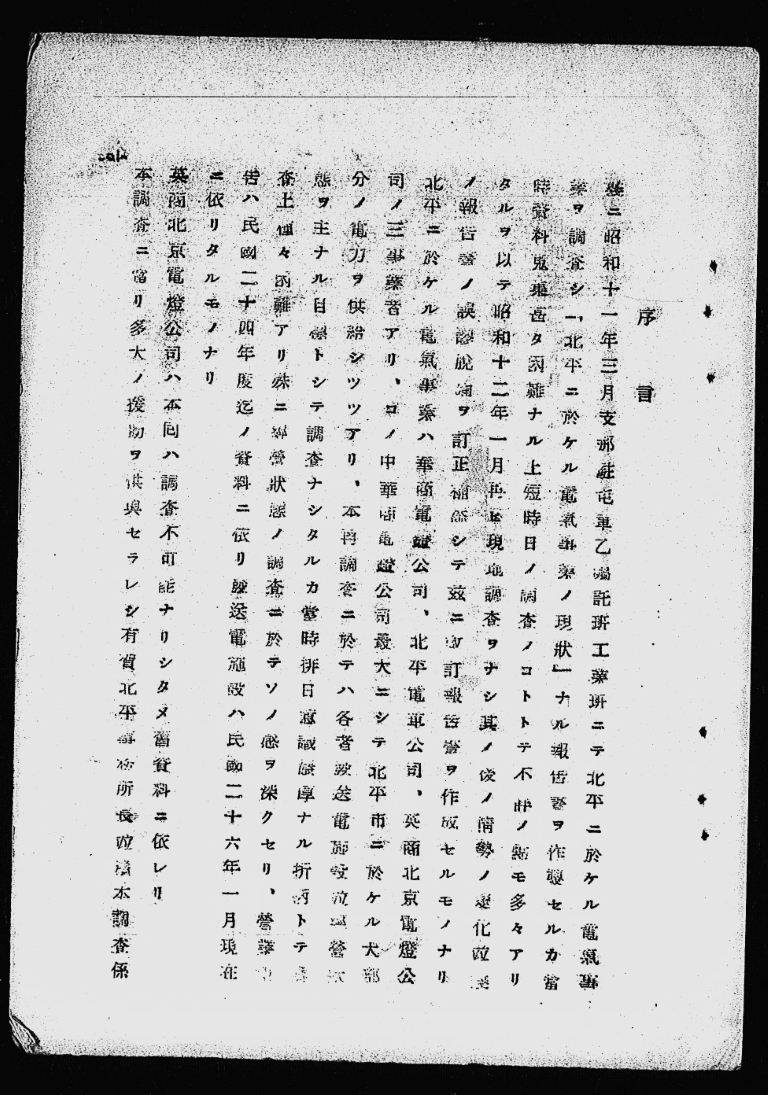 序言
ニ昭和十一年三月支那駐屯軍乙嘱託班工業班ニテ北平ニ於ケル電氣事
業ヲ調査シ「北平ニ於ケル電氣事業ノ現狀」ナル報告書ヲ作製セルカ當
時資料蒐集甚タ困難ナル上短時日ノ調査ノコトトテ不詳ノ點モ多々アリ
タルヲ以テ昭和十二年一月再ヒ現地調査ヲナシ其ノ後ノ情勢ノ變化竝
ノ報告書ノ誤謬脫漏ヲ訂正補然シテ茲ニ改訂報告書ヲ作成セルモノナリ
北平ニ於ケル電氣事業ハ華商電燈公司、北平電車公司、英商北京電燈公
司ノ三事業者アリ、コノ中華商電燈公司最大ニシテ北平市ニ於ケル大部
分ノ電力ヲ供給シツツアリ、本再調査ニ於テハ各者發送電施設竝經營狀
態ヲ主ナル目標トシテ調査ナシタルカ當時排日意識濃厚ナル折柄トテ
査上種々困難アリ殊ニ經營狀態ノ調査ニ於テソノ感ヲ深クセリ、營業
告ハ民國二十四年度迄ノ資料ニ依リ發送電施設ハ民國二十六年一月現在
ニ依リタルモノナリ
英商北京電燈公司ハ本回ハ調査不可能ナリシタメ舊資料ニ依レリ
本調査ニ當リ多大ノ援助ヲ供與セラレシ有賀北平事務所長竝橋本調査係